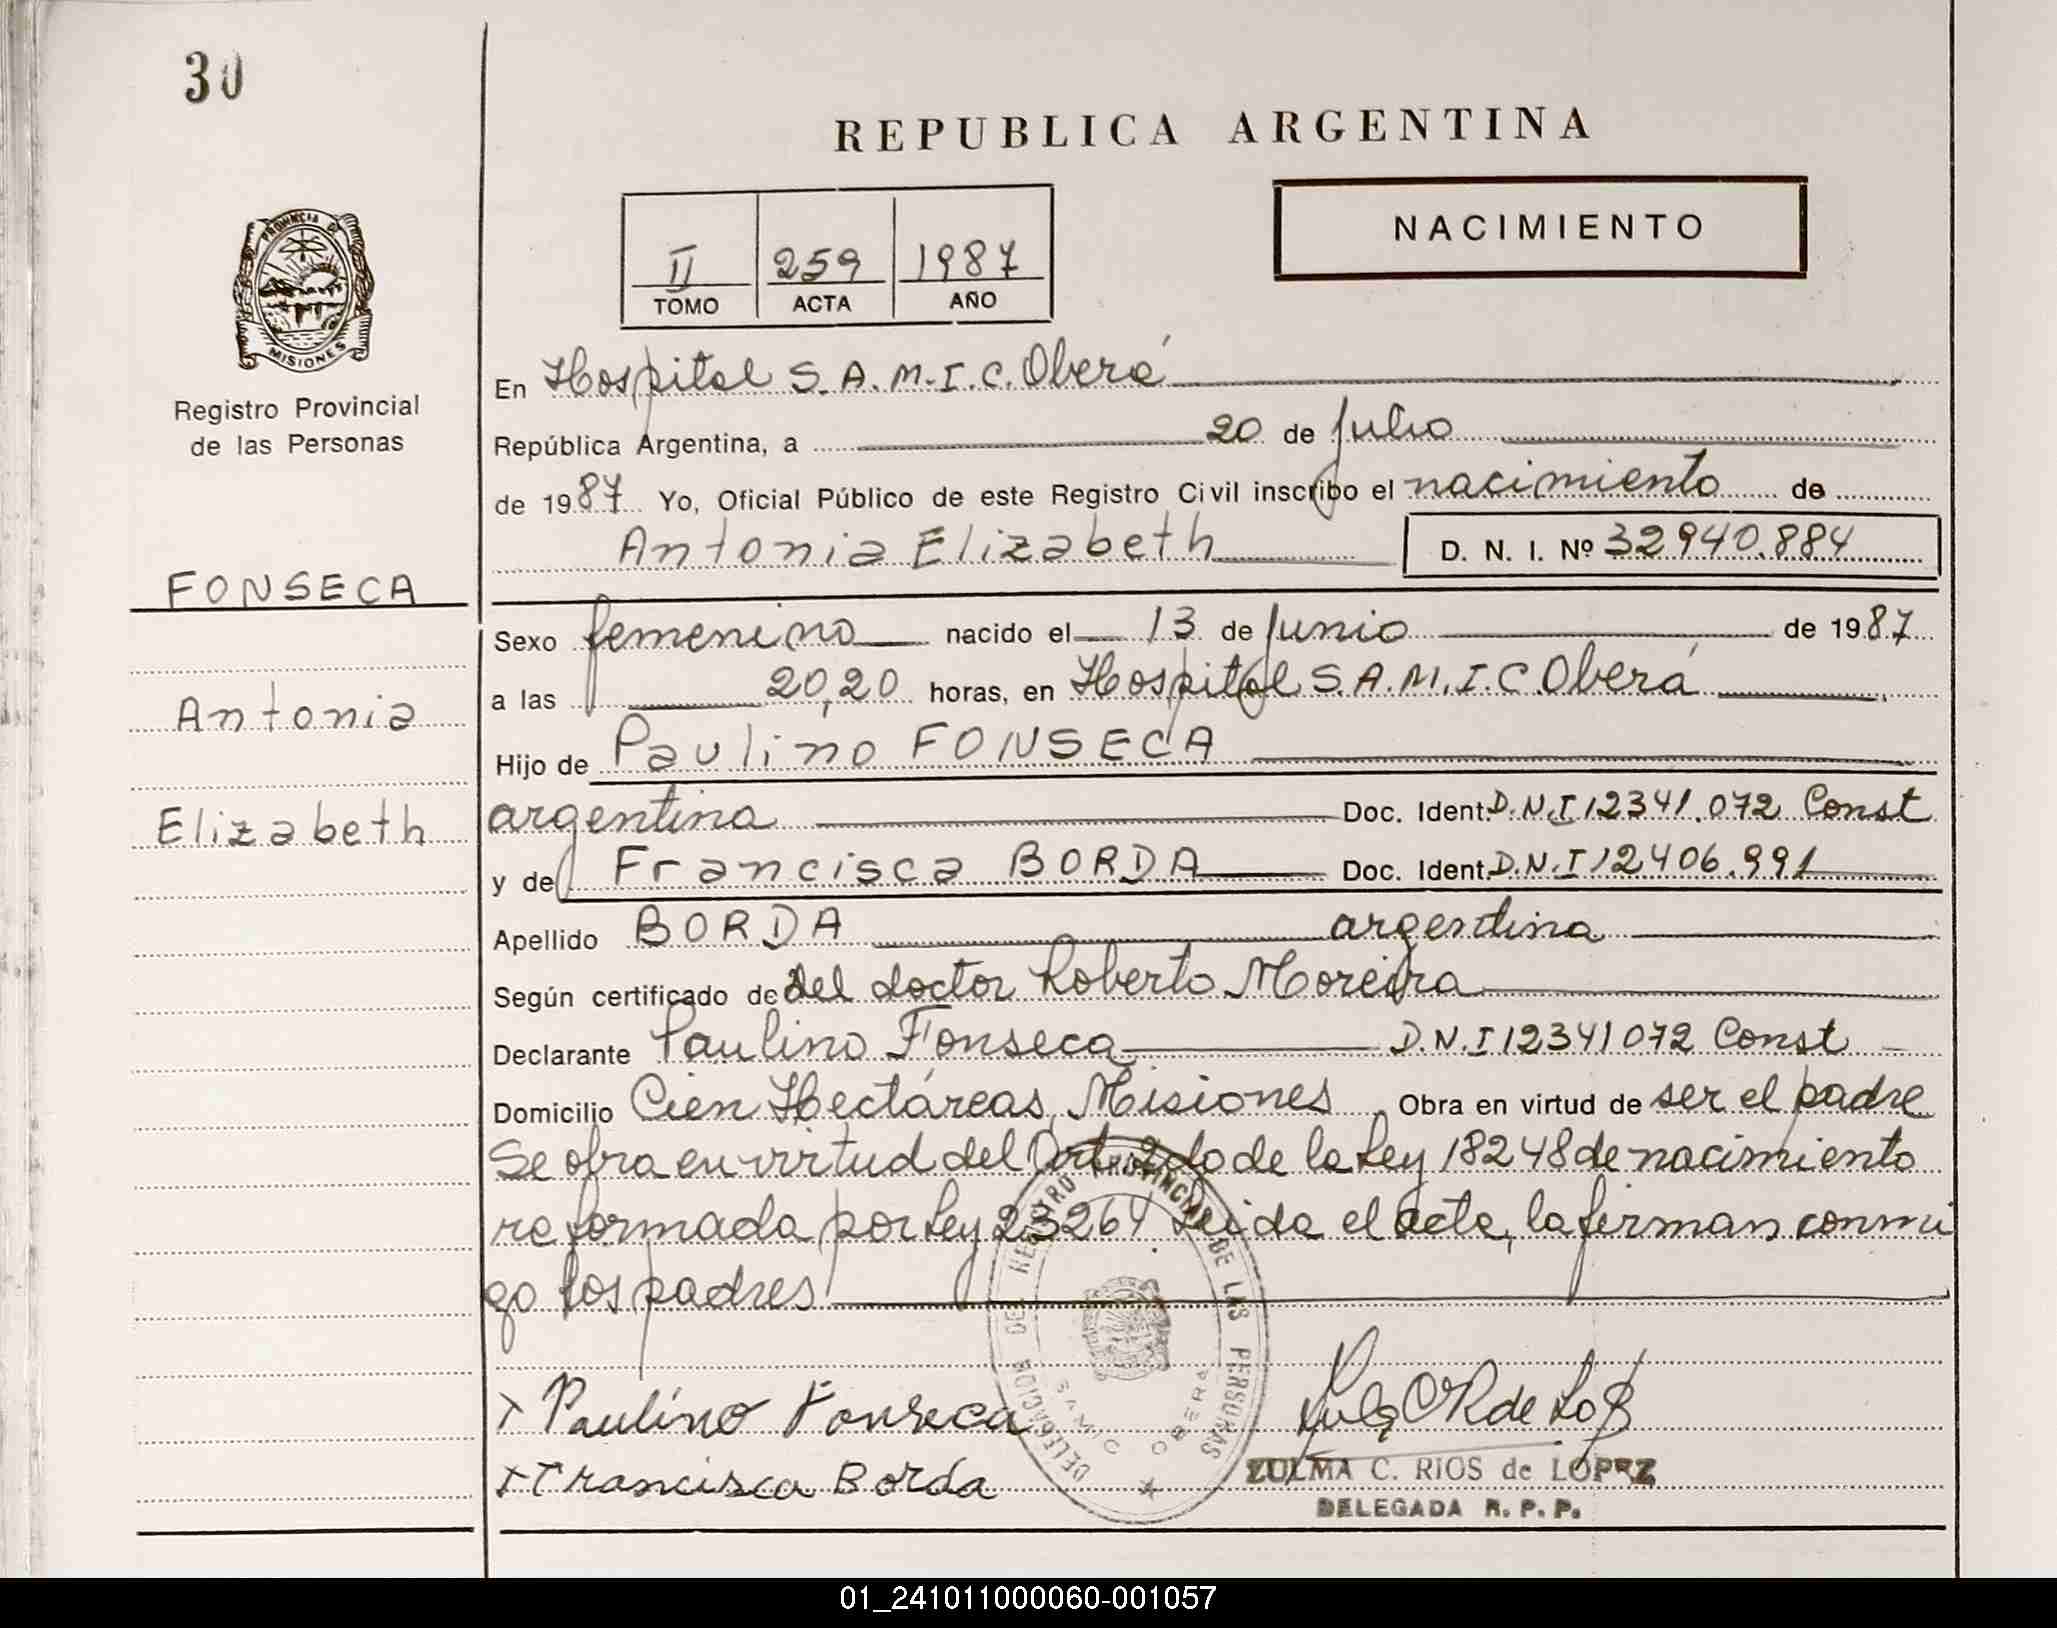 30
REPUBLICA ARGENTINA
NACIMIENTO
II 259 1987
TOMO ACTA AÑO
PROVINCIA DE
MISIONES
Registro Provincial
de las Personas
FONSECA
Antonia
Elizabeth
En Hospital S.A.M.I.C. Oberá
República Argentina, a 20 de Julio
de 1987 Yo, Oficial Público de este Registro Civil inscribo el nacimiento de
Antonia Elizabeth D. N. I. Nº 32940.884
Sexo femenino nacido el 13 de Junio de 1987
a las 20,20 horas, en Hospital S.A.M.I.C. Oberá
Hijo de Paulino FONSECA
argentina Doc. Ident. D.N.I 12341.072 Const
y de Francisca BORDA Doc. Ident. D.N.I 12406.991
Apellido BORDA argentina
Según certificado de del doctor Roberto Moreira
Declarante Paulino Fonseca D.N.I 12341072 Const
Domicilio Cien Hectáreas, Misiones, Obra en virtud de ser el padre
Se obra en virtud del Art. 2do de la Ley 18248 de nacimiento
reformada por Ley 23264 Leida el acta, la firman conmi
go los padres
Paulino Fonseca
Francisca Borda
DELEGACION DEL REGISTRO PROVINCIAL DE LAS PERSONAS
SAMIC OBERA
ZULMA C. RIOS de LOPEZ
DELEGADA R. P. P.
01_241011000060-001057